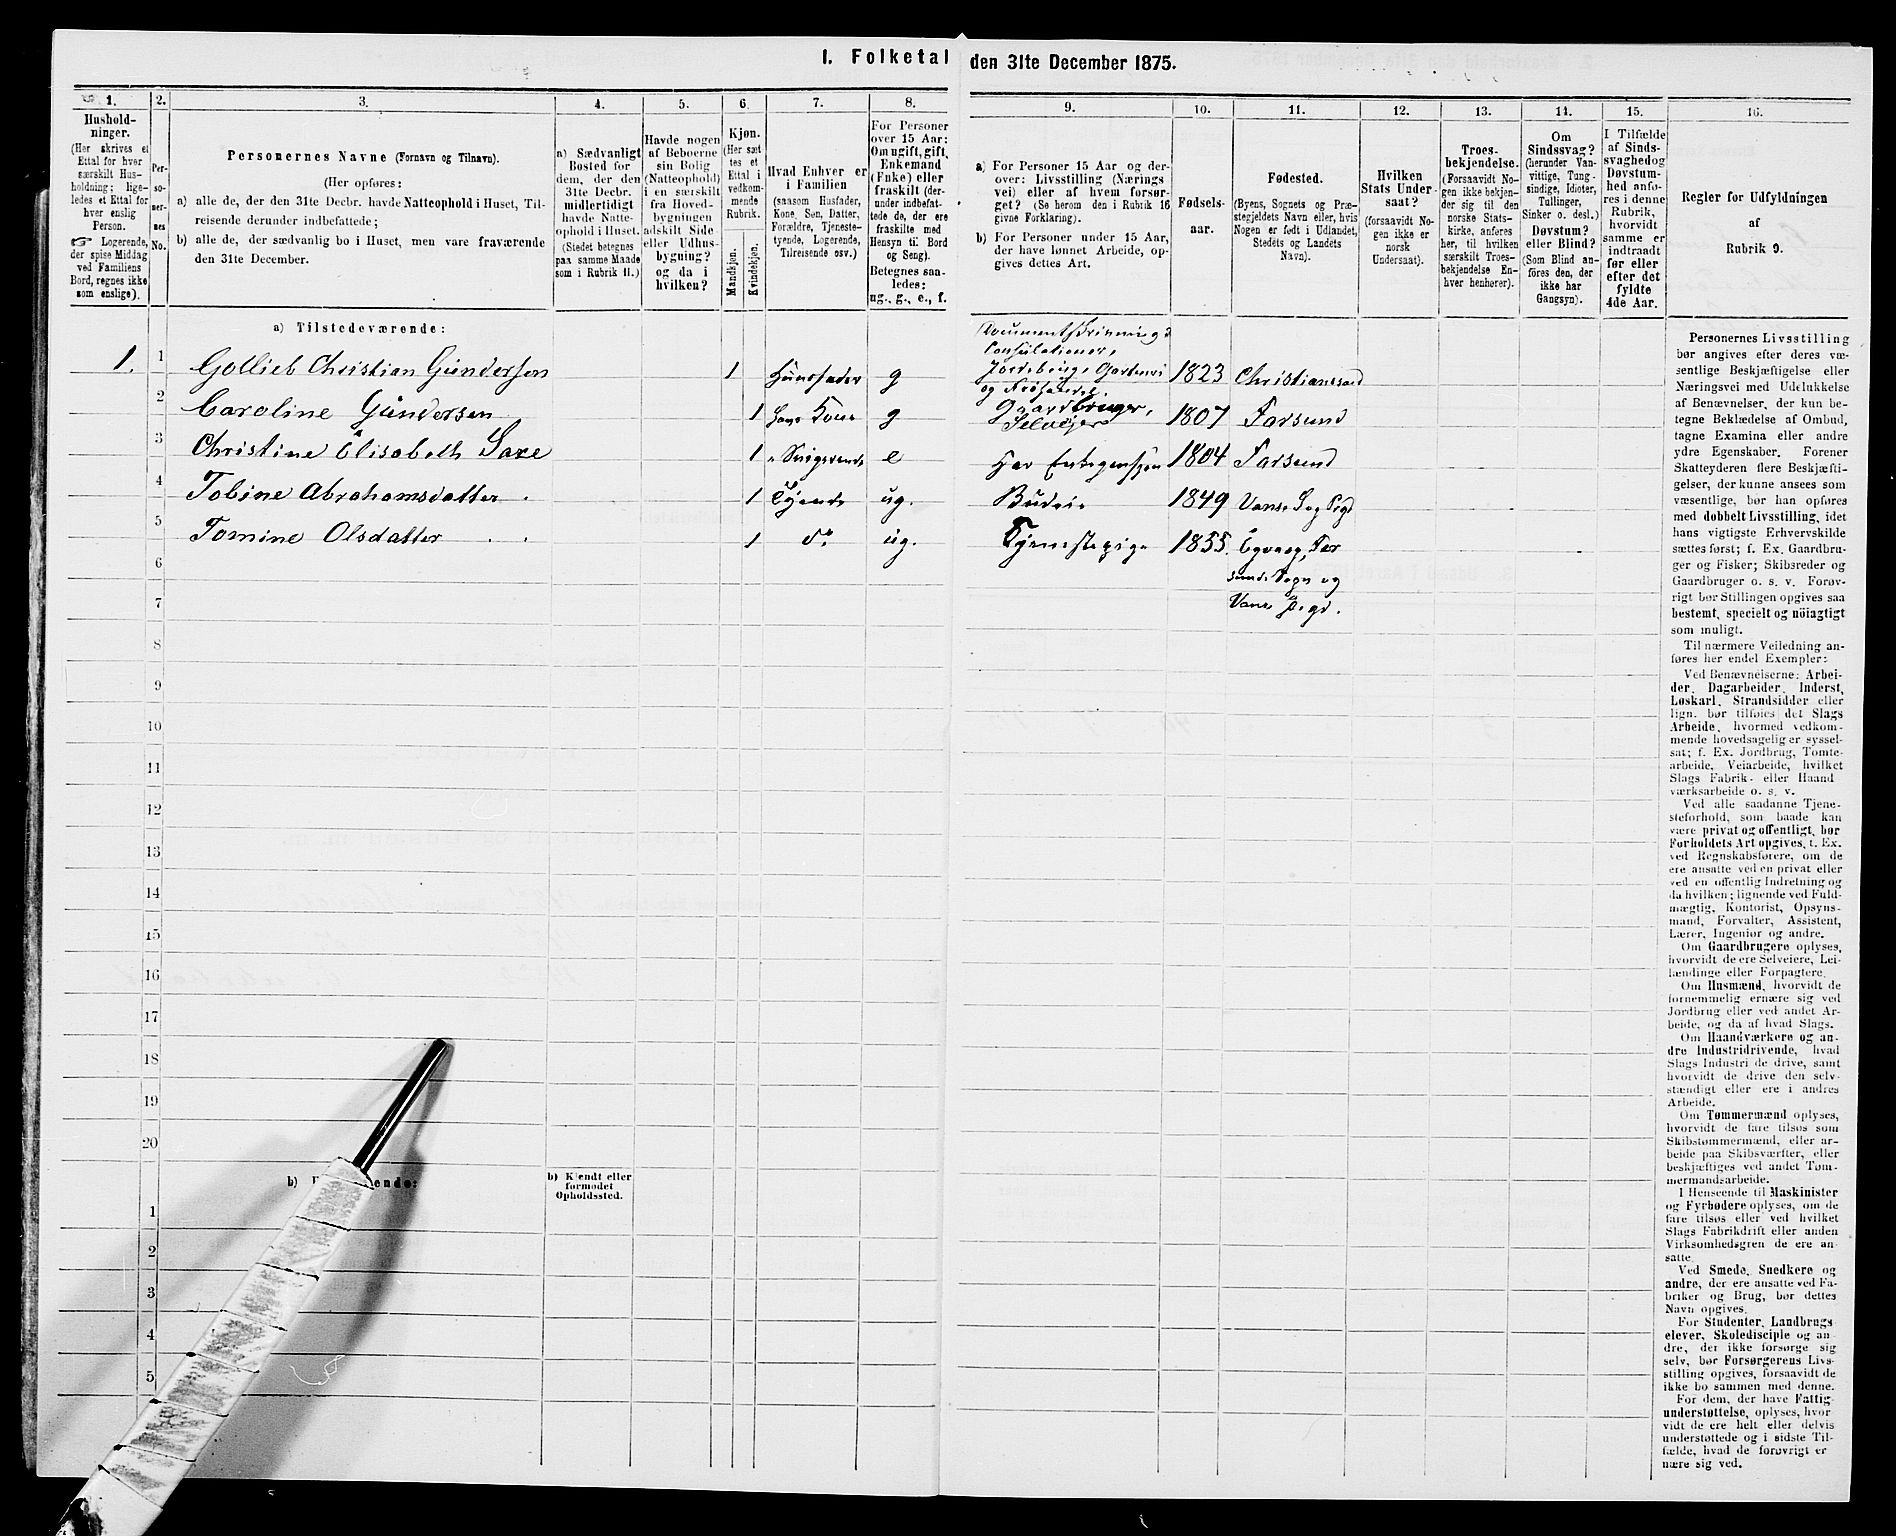 I. Folketal den 31te December 1875.
1.
Hushold-
ninger.
(Her skrives et
Ettal for hver
særskilt Hus-
holdning; lige-
ledes et Ettal for
hver enslig
Person.
☞ Logerende,
der spise Middag
ved Familiens
Bord, regnes ikke
som enslige).
2.
Per-
so-
ner-
nes
No.
3.
Personernes Navne (Fornavn og Tilnavn).
(Her opføres:
a) alle de, der den 31te Decbr. havde Natteophold i Huset, Til-
reisende derunder indbefattede;
b) alle de, der sædvanlig bo i Huset, men vare fraværende
den 31te December.
4.
a) Sædvanligt
Bosted for
dem, der den
31te Decbr.
midlertidigt
havde Natte-
ophold i Huset.
(Stedet betegnes
paa samme Maade
som i Rubrik 11.)
5.
Havde nogen
af Beboerne
sin Bolig
(Natteophold)
i en særskilt
fra Hoved-
bygningen
adskilt Side
eller Udhus-
bygning?
og da i
hvilken?
6.
Kjøn.
(Her sæt
tes et
Ettal i
vedkom-
mende
Rubrik.
Mandkjøn.
Kvindekjøn.
7.
Hvad Enhver er
i Familien
(saasom Husfader,
Kone, Søn, Datter,
Forældre, Tjeneste-
tyende, Logerende,
Tilreisende osv.)
8.
For Personer
over 15 Aar:
Om ugift, gift,
Enkemand
(Enke) eller
fraskilt (der-
under indbefat-
tede de, der ere
fraskilte med
Hensyn til Bord
og Seng).
Betegnes saa-
ledes:
ug., g., e., f.
9.
a) For Personer 15 Aar og der-
over: Livsstilling (Nærings
vei) eller af hvem forsør-
get? (Se herom den i Rubrik 16
givne Forklaring).
b) For Personer under 15 Aar,
der have lønnet Arbeide, op-
gives dettes Art.
10.
Fødsels-
aar.
11.
Fødested.
(Byens, Sognets og Præ-
stegjeldets Navn eller, hvis
Nogen er født i Udlandet,
Stedets og Landets
Navn).
12.
Hvilken
Stats Under-
saat?
(forsaavidt No-
gen ikke er
norsk
Undersaat).
13.
Troes-
bekjendelse.
(Forsaavidt No-
gen ikke bekjen-
der sig til den
norske Stats-
kirke, anføres
her, til hvilken
særskilt Troes-
bekjendelse En-
hver henhører).
14.
Om
Sindssvag?
(herunder Van-
vittige, Tung-
sindige, Idioter,
Tullinger,
Sinker o. desl.)
Døvstum?
eller Blind?
(Som Blind an-
føres den, der
ikke har
Gangsyn).
15.
I Tilfælde
af Sinds-
svaghed og
Døvstum-
hed anfø-
res i denne
Rubrik,
hvorvidt
samme er
indtraadt
før eller
efter det
fyldte
4de Aar.
16.
Regler for Udfyldningen
af
Rubrik 9.
a) Tilstedeværende:
1. 1 Gottlieb Christian Gundersen 1 Huusfader g Documentskrivning og
Consulationer,
Jordebrug, Gartneri
og Frøhandel. 1823 Christianssand
2 Caroline Gundersen 1 hans Kone g Gaardbruger,
Selveier 1807 Farsund
3 Christine Elisabeth Saxe 1 e 1804 Farsund
4 Tobine Abrahamsdatter 1 Tyende ug. Budeie 1849 Vanse Sog Prgd
5 Tomine Olsdatter 1 do ug. Tjenestepige 1855. Far
sunds Sogn og
Vanse Prgd.
6
7
8
9
10
11
12
13
14
15
16
17
18
19
20
b) ende:
b) Kjendt eller
formodet
Opholdssted.
1
2
3
4
5
Personernes Livsstilling
bør angives efter deres væ-
sentlige Beskjæftigelse eller
Næringsvei med Udelukkelse
af Benævnelser, der kun be-
tegne Beklædelse af Ombud,
tagne Examina eller andre
ydre Egenskaber. Forener
Skatteyderen flere Beskjæfti-
gelser, der kunne ansees som
væsentlige, bør han opføres
med dobbelt Livsstilling, idet
hans vigtigste Erhvervskilde
sættes først; f. Ex. Gaardbru-
ger og Fisker; Skibsreder og
Gaardbruger o. s. v. Forøv-
rigt bør Stillingen opgives saa
bestemt, specielt og nöiagtigt
som muligt.
Til nærmere Veiledning an-
føres her endel Exempler:
Ved Benævnelserne: Arbei-
der, Dagarbeider, Inderst,
Løskarl, Strandsidder eller
lign. bør tilføies det Slags
Arbeide, hvormed vedkom-
mende hovedsagelig er syssel-
sat; f. Ex. Jordbrug, Tomte-
arbeide, Veiarbeide, hvilket
Slags Fabrik- eller Haand
værksarbeide o. s. v.
Ved alle saadanne Tjene-
steforhold, som baade kan
være privat og offentligt, bør
Forholdets Art opgives, t. Ex.
ved Regnskabsførere, om de
ere ansatte ved en privat eller
ved en offentlig Indretning og
da hvilken; lignende ved Fuld-
mægtig, Kontorist, Opsyns-
mand, Forvalter, Assistent,
Lærer, Ingeniør og andre.
Om Gaardbrugere oplyses,
hvorvidt de ere Selveiere, Lei-
lændinge eller Forpagtere.
Om Husmænd, hvorvidt de
fornemmelig ernære sig ved
Jordbrug eller ved andet Ar-
beide, og da af hvad Slags.
Om Haandværkere og an-
dre Industridrivende, hvad
Slags Industri de drive, samt
hvorvidt de drive den selv-
stændigt eller ere i andres
Arbeide.
Om Tømmermænd oplyses,
hvorvidt de fare tilsøs som
Skibstømmermænd, eller ar-
beide paa Skibsværfter, eller
beskjæftiges ved andet Tøm-
mermandsarbeide.
I Henseende til Maskinister
og Fyrbødere oplyses, om de
fare tilsøs eller ved hvilket
Slags Fabrikdrift eller anden
Virksomhedsgren de ere an-
satte.
Ved Smede, Snedkere og
andre, der ere ansatte ved Fa-
briker og Brug, bør dettes
Navn opgives.
For Studenter, Landbrugs
elever, Skoledisciple og an-
dre, der ikke forsørge sig
selv, bør Forsørgerens Livs-
stilling opgives, forsaavidt de
ikke bo sammen med denne.
For dem, der have Fattig-
understøttelse, oplyses, hvor
vidt de ere helt eller delvis
understøttede og i sidste Til-
fælde, hvad de forøvrigt er
nære sig ved.